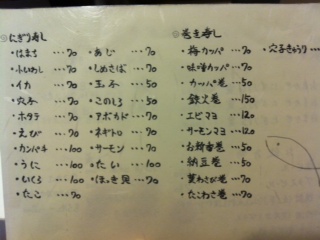 にぎり寿し
・はまち …70
・小いわし …70
・イカ …70
・穴子 …70
・ホタテ …70
・えび …70
・カンパチ …100
・うに …100
・いくら …100
・たこ …70
・あじ …70
・しめさば …70
・玉子 …50
・このしろ …50
・アボカド …70
・ネギトロ …70
・サーモン …70
・たい …100
・ほっき貝 …70
巻き寿し
・梅カッパ …70
・味噌カッパ …70
・カッパ巻 …50
・鉄火巻 …150
・エビマヨ …120
・サーモンマヨ …120
・お新香巻 …50
・納豆巻 …50
・葉わさび巻 …70
・たこわさ巻 …70
・穴子きゅうり …